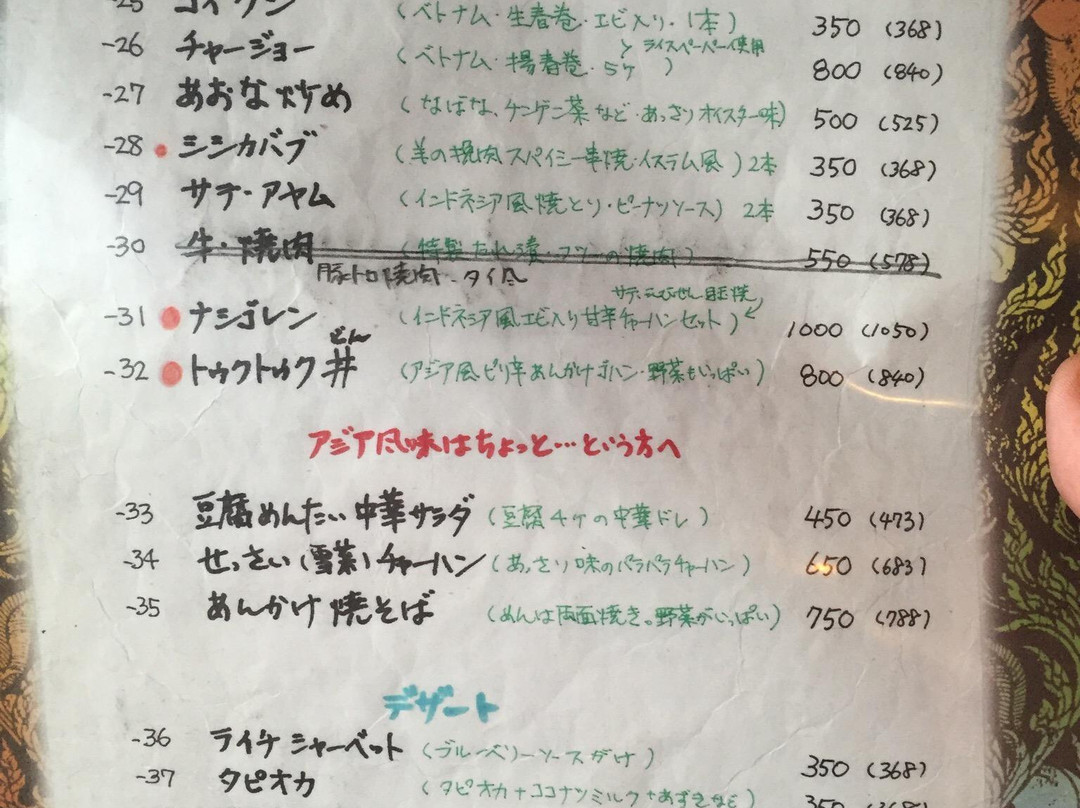 -25 ゴイクン (ベトナム・生春巻・エビ入り・1本) 350 (368)
と ライスペーパー使用
-26 チャージョー (ベトナム・揚春巻・5ケ ) 800 (840)
-27 あおな炒め (なばな、ケンゲン菜など・あっさりオイスター味) 500 (525)
-28 シシカバブ (羊の挽肉スパイシー串焼・イスラム風) 2本 350 (368)
-29 サテ・アヤム (インドネシア風焼とり・ピーナツソース) 2本 350 (368)
-30 牛・焼肉 (特製たれ漬・フツーの焼肉) 550 (578)
豚トロ焼肉・タイ風
サテ、えびせん 目玉焼
-31 ナシゴレン (インドネシア風エビ入り甘辛チャーハンセット) 1000 (1050)
どん
-32 トゥクトゥク丼 (アジア風ピリ辛あんかけゴハン・野菜もいっぱい) 800 (840)
アジア風味はちょっと…という方へ
-33 豆腐めんたい中華サラダ (豆腐4ケの中華ドレ) 450 (473)
-34 せっさい(雪菜)チャーハン (あっさり味のパラパラチャーハン) 650 (683)
-35 あんかけ焼そば (めんは両面焼き。野菜がいっぱい) 750 (788)
デザート
-36 ライチシャーベット (ブルーベリーソースがけ) 350 (368)
-37 タピオカ (タピオカ+ココナツミルク+あずきなど) 350 (368)